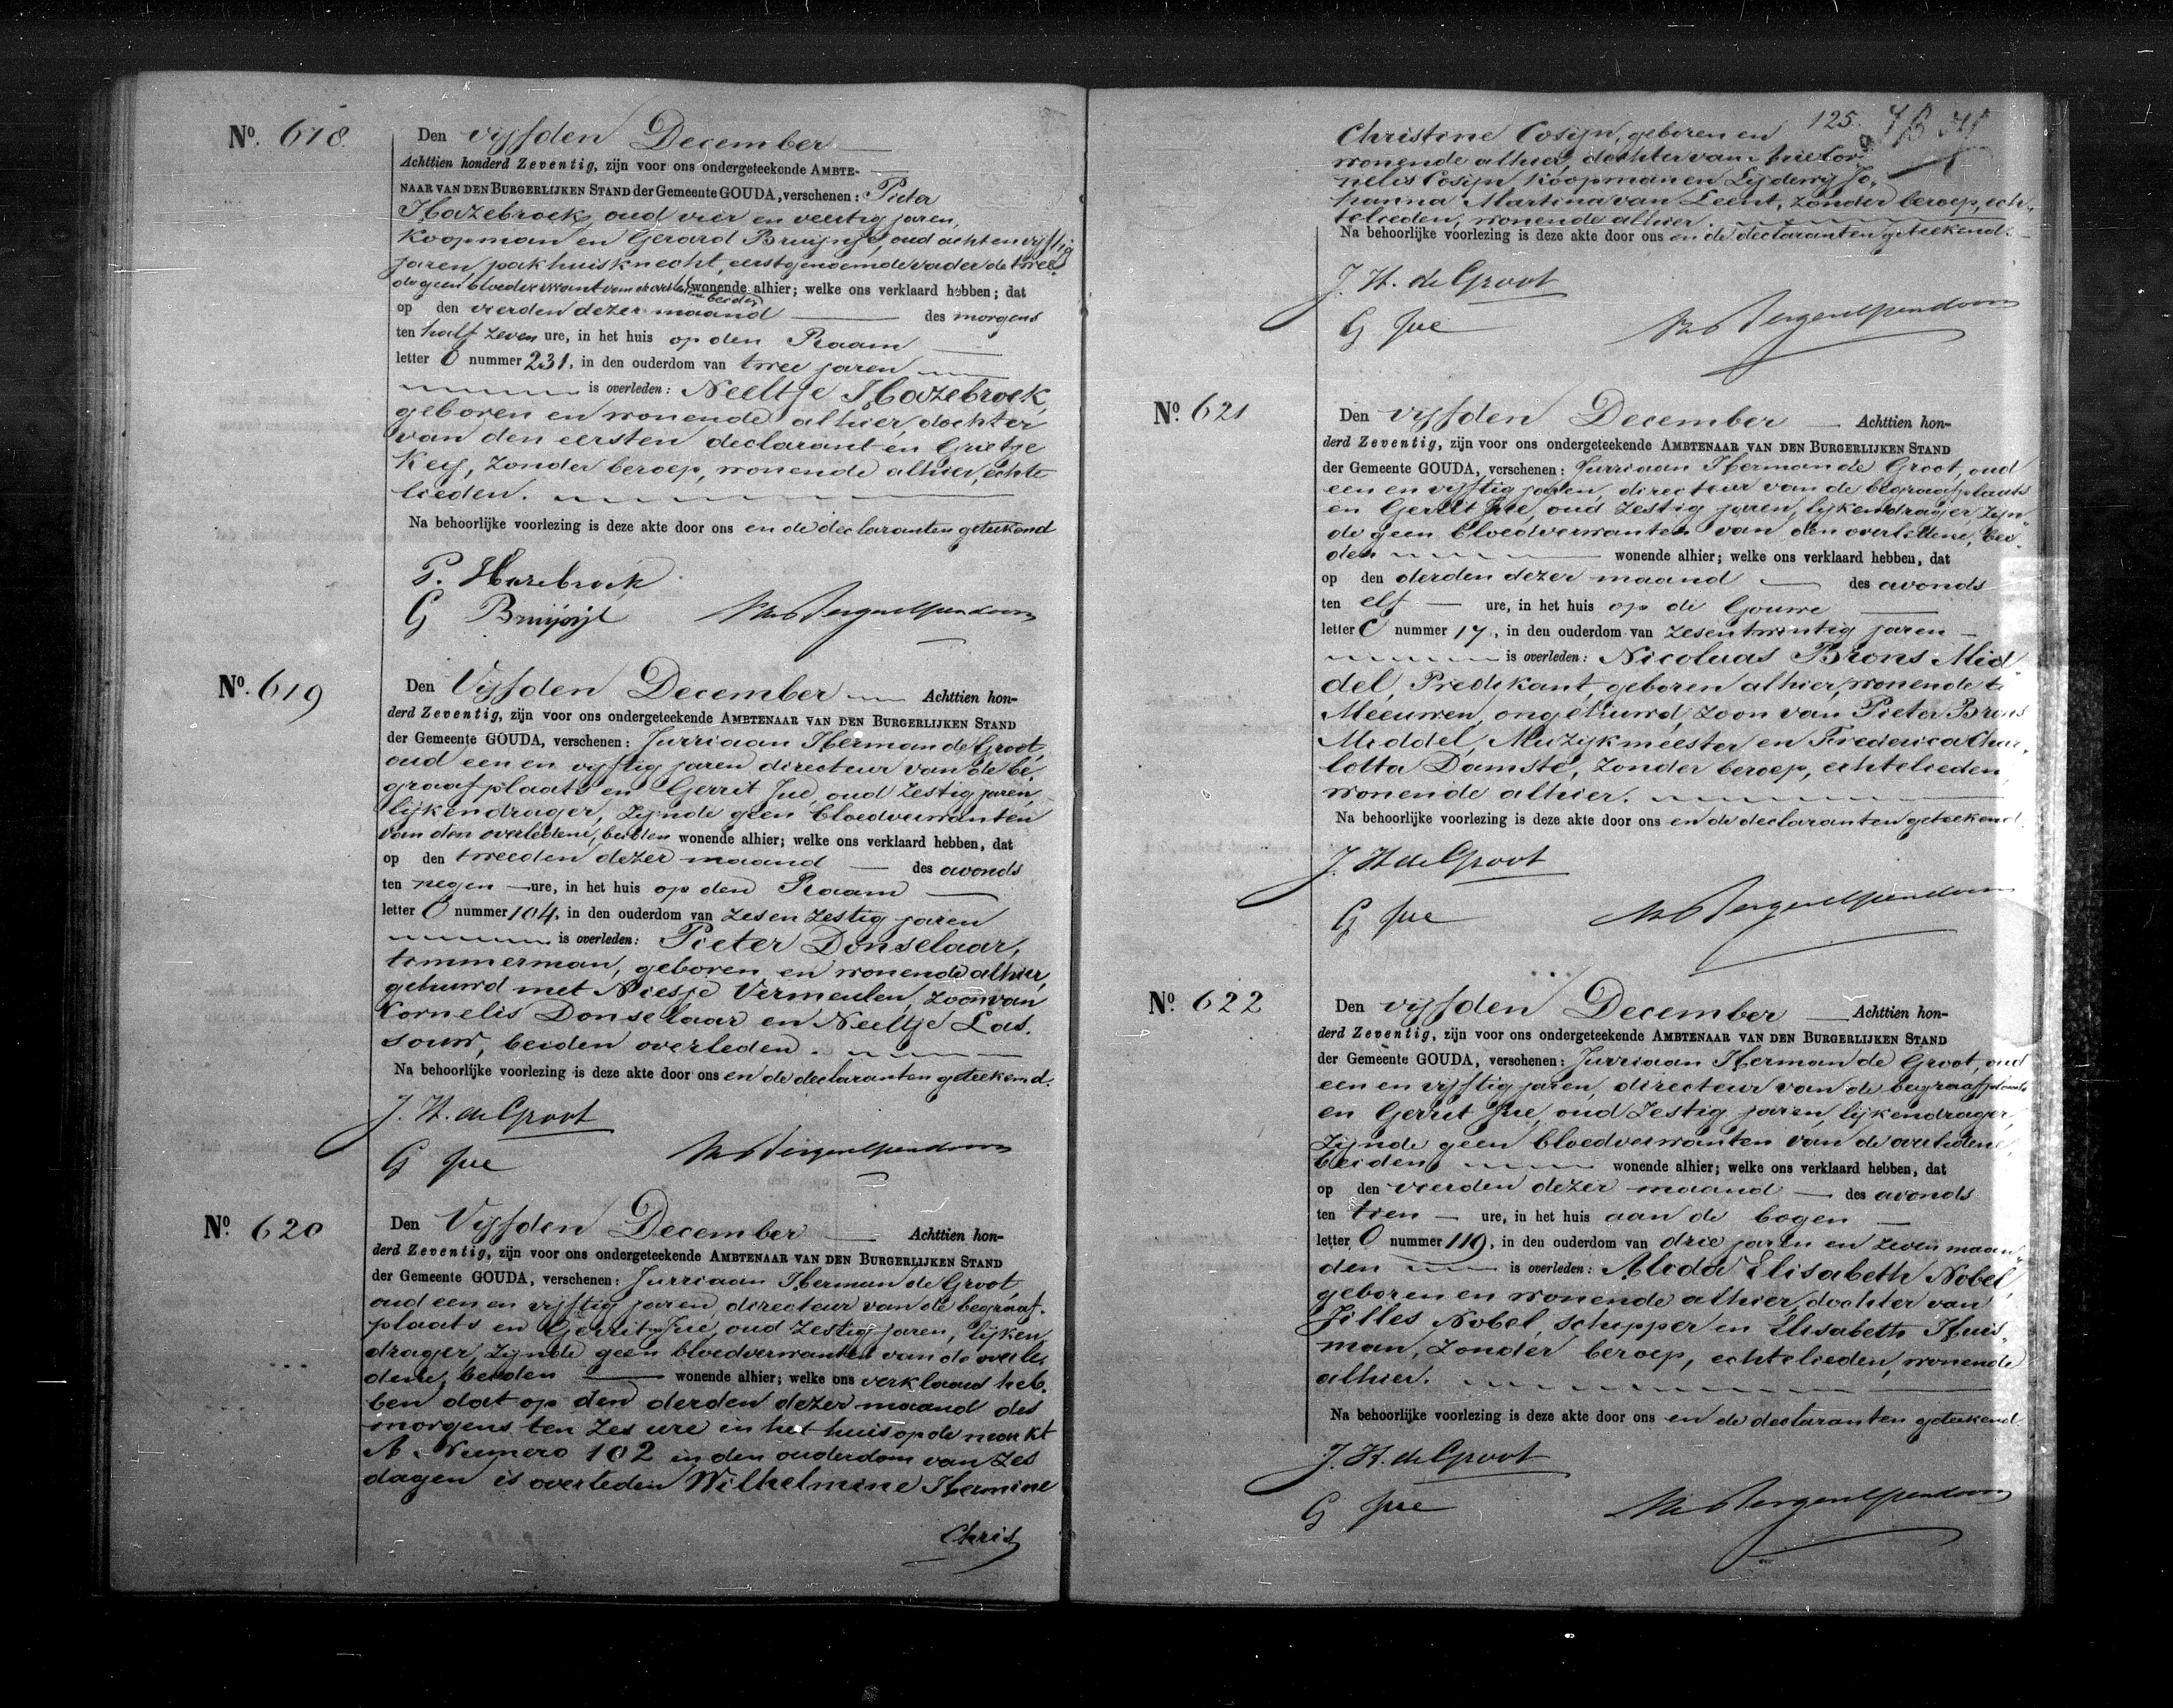 No. 618.
Den vijfden December
Achttien honderd Zeventig, zijn voor ons ondergeteekende AMBTE-
NAAR VAN DEN BURGERLIJKEN STAND der Gemeente GOUDA, verschenen: Pieter
Hazebroek, oud vier en veertig jaren,
Koopman en Gerard Bruijnje, oud acht en vijftig
jaren, pakhuisknecht, eerstgenoemde vader de twee
de geen bloedverwant van de overledene beiden wonende alhier; welke ons verklaard hebben; dat
op den vierden dezer maand des morgens
ten half zeven ure, in het huis op den Raam
letter O nummer 231, in den ouderdom van twee jaren
is overleden: Neeltje Hazebroek,
geboren en wonende alhier, dochter
van den eersten declarant en Grietje
Keij, zonder beroep, wonende alhier, echte
lieden.
Na behoorlijke voorlezing is deze akte door ons en de declaranten geteekend
P. Hazebroek
G Bruijnje
No. 619
Den Vijfden December Achttien hon-
derd Zeventig, zijn voor ons ondergeteekende AMBTENAAR VAN DEN BURGERLIJKEN STAND
der Gemeente GOUDA, verschenen: Jurriaan Herman de Groot,
oud een en vijftig jaren directeur van de be-
graafplaats en Gerrit Jue, oud zestig jaren,
lijkendrager, zijnde geen bloedverwanten
van den overledene, beiden wonende alhier; welke ons verklaard hebben, dat
op den tweeden dezer maand des avonds
ten negen ure, in het huis op den Raam
letter O nummer 104, in den ouderdom van zes en zestig jaren
is overleden: Pieter Donselaar,
timmerman, geboren en wonende alhier,
gehuwd met Niesje Vermeulen, zoon van
Kornelis Donselaar en Neeltje Las-
souw, beiden overleden.
Na behoorlijke voorlezing is deze akte door ons en de declaranten geteekend.
J. H. de Groot
G Jue
No. 620
Den Vijfden December Achttien hon-
derd Zeventig, zijn voor ons ondergeteekende AMBTENAAR VAN DEN BURGERLIJKEN STAND
der Gemeente GOUDA, verschenen: Jurriaan Herman de Groot,
oud een en vijftig jaren, directeur van de begraaf-
plaats en Gerrit Jue, oud zestig jaren, lijken
drager, zijnde geen bloedverwanten van de overle-
dene, beiden wonende alhier; welke ons verklaard heb-
ben dat op den derden dezer maand des
morgens ten zes ure in het huis op de markt
A. Numero 102 in den ouderdom van zes
dagen is overleden Wilhelmine Hermine
Chris
125.
Christine Cosijn, geboren en
wonende alhier, dochter van Arie Cor-
nelis Cosijn, Koopman en Lijdewij Jo-
hanna Martina van Leent, zonder beroep, ech-
telieden, wonende alhier.
Na behoorlijke voorlezing is deze akte door ons en de declaranten geteekend.
J. H. de Groot
G Jue
No. 621
Den vijfden December Achttien hon-
derd Zeventig, zijn voor ons ondergeteekende AMBTENAAR VAN DEN BURGERLIJKEN STAND
der Gemeente GOUDA, verschenen: Jurriaan Herman de Groot, oud
een en vijftig jaren, directeur van de begraafplaats
en Gerrit Jue, oud zestig jaren, lijkendrager, zijn
de geen bloedverwanten van den overledene, bei-
den wonende alhier; welke ons verklaard hebben, dat
op den derden dezer maand des avonds
ten elf ure, in het huis op de Gouwe
letter C nummer 17, in den ouderdom van zesentwintig jaren
is overleden: Nicolaas Brons Mid
del, Predikant, geboren alhier, wonende te
Meeuwen, ongehuwd, zoon van Pieter Brons
Middel, Muzijkmeester en Frederica Char-
lotta Damsté, zonder beroep, echtelieden,
wonende alhier.
Na behoorlijke voorlezing is deze akte door ons en de declaranten geteekend.
J. H. de Groot
G Jue
No. 622
Den vijfden December Achttien hon-
derd Zeventig, zijn voor ons ondergeteekende AMBTENAAR VAN DEN BURGERLIJKEN STAND
der Gemeente GOUDA, verschenen: Jurriaan Herman de Groot, oud
een en vijftig jaren, directeur van de begraafplaats
en Gerrit Jue, oud zestig jaren, lijkendrager,
zijnde geen bloedverwanten van de overledene,
beiden wonende alhier; welke ons verklaard hebben, dat
op den vierden dezer maand des avonds
ten tien ure, in het huis aan de bogen
letter O nummer 119, in den ouderdom van drie jaren en zeven maan
den is overleden: Alida Elisabeth Nobel,
geboren en wonende alhier, dochter van
Jilles Nobel, schipper en Elisabeth Huis-
man, zonder beroep, echtelieden, wonende
alhier.
Na behoorlijke voorlezing is deze akte door ons en de declaranten geteekend.
J. H. de Groot
G Jue